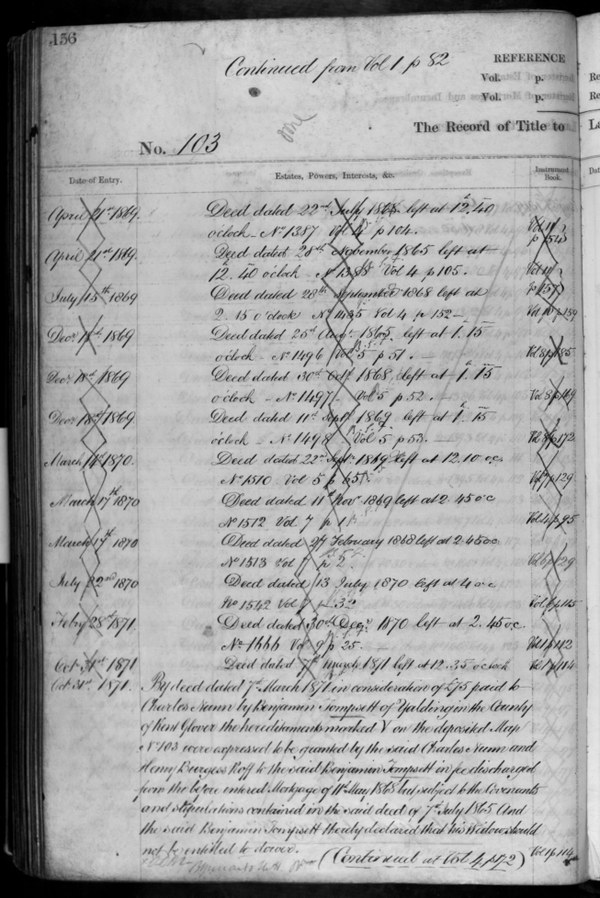 156
Continued from Vol 1 p 82
REFERENCE
Vol. p.
Vol. p.
The Record of Title to
No. 103
Date of Entry. Estates, Powers, Interests, &c. Instrument Book.
April 21st 1869. Deed dated 22nd July 1865 left at 12.40
o'clock. No 1387 Vol 4 p 104. Vol 11
April 21st 1869. Deed dated 20th November 1865 left at
12.40 o'clock Vol 4 p 105.
July 15th 1869 Deed dated 28th September 1868 left at
2.15 o'clock No 1435 Vol 4 p 152 Vol 10 p 189
Decr 18th 1869 Deed dated 25th Augt 1865 left at 1.15
o'clock - No 1496 Vol 5 p 51. Vol 8 p 85
Decr 18th 1869 Deed dated 30th Octr 1868 left at 1.15
o'clock - No 1497. Vol 5 p 52. Vol 8 p 119
Decr 18th 1869 Deed dated 11th Sept 1869 left at 1.15
o'clock - No 1498 Vol 5 p 53. Vol 8 p 172
March 14th 1870. Deed dated 22nd Sept. 1869 left at 12.10 o.c.
No 1510 Vol 5 p 65 Vol 7 p 129
March 17th 1870 Deed dated 11th Novr 1869 left at 2.45 o.c
No 1512 Vol 7 p 1 Vol 4 p 95
March 17th 1870 Deed dated 27 February 1868 left at 2.45 o.c
No 1513 Vol 7 p 2 p 29
July 22nd 1870 Deed dated 13 July 1870 left at 4 o.c
No 1542 Vol 7 p 32 p 115
Feby 28th 1871 Deed dated 30th Decr 1870 left at 2.45 o.c.
No 1666 Vol 9 p 25. Vol 1 p 112
Oct 31st 1871 Deed dated 7th March 1871 left at 12.35 o'clock Vol 1 p 114
Oct 31st 1871. By deed dated 7th March 1871 in consideration of £75 paid to
Charles Nunn by Benjamin Tompsett of Yalding in the County
of Kent Glover the hereditaments marked V on the deposited Map
No 103 were expressed to be granted by the said Charles Nunn and
Henry Burgess Roff to the said Benjamin Tompsett in fee discharged
from the before entered Mortgage of 11th May 1865 but subject to the Covenants
and stipulations contained in the said deed of 7th July 1865 And
the said Benjamin Tompsett thereby declared that his Widow should
not be entitled to dower. Vol 1 p 114
(Continued at Vol 4 p 72)